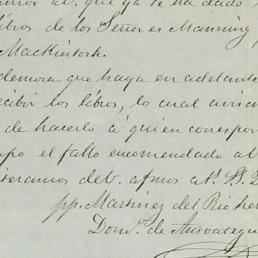 que ya te ha dado
libros de los Señores Manning
Mackintosh.
demora que haya en adelante
recibir los libros, lo cual
de hacerlo á quien correspon
el falto encomendado al
teramos de V. afmos at. S. S.
pp. Martinez del Rio her
Dom.º de Ansoategui